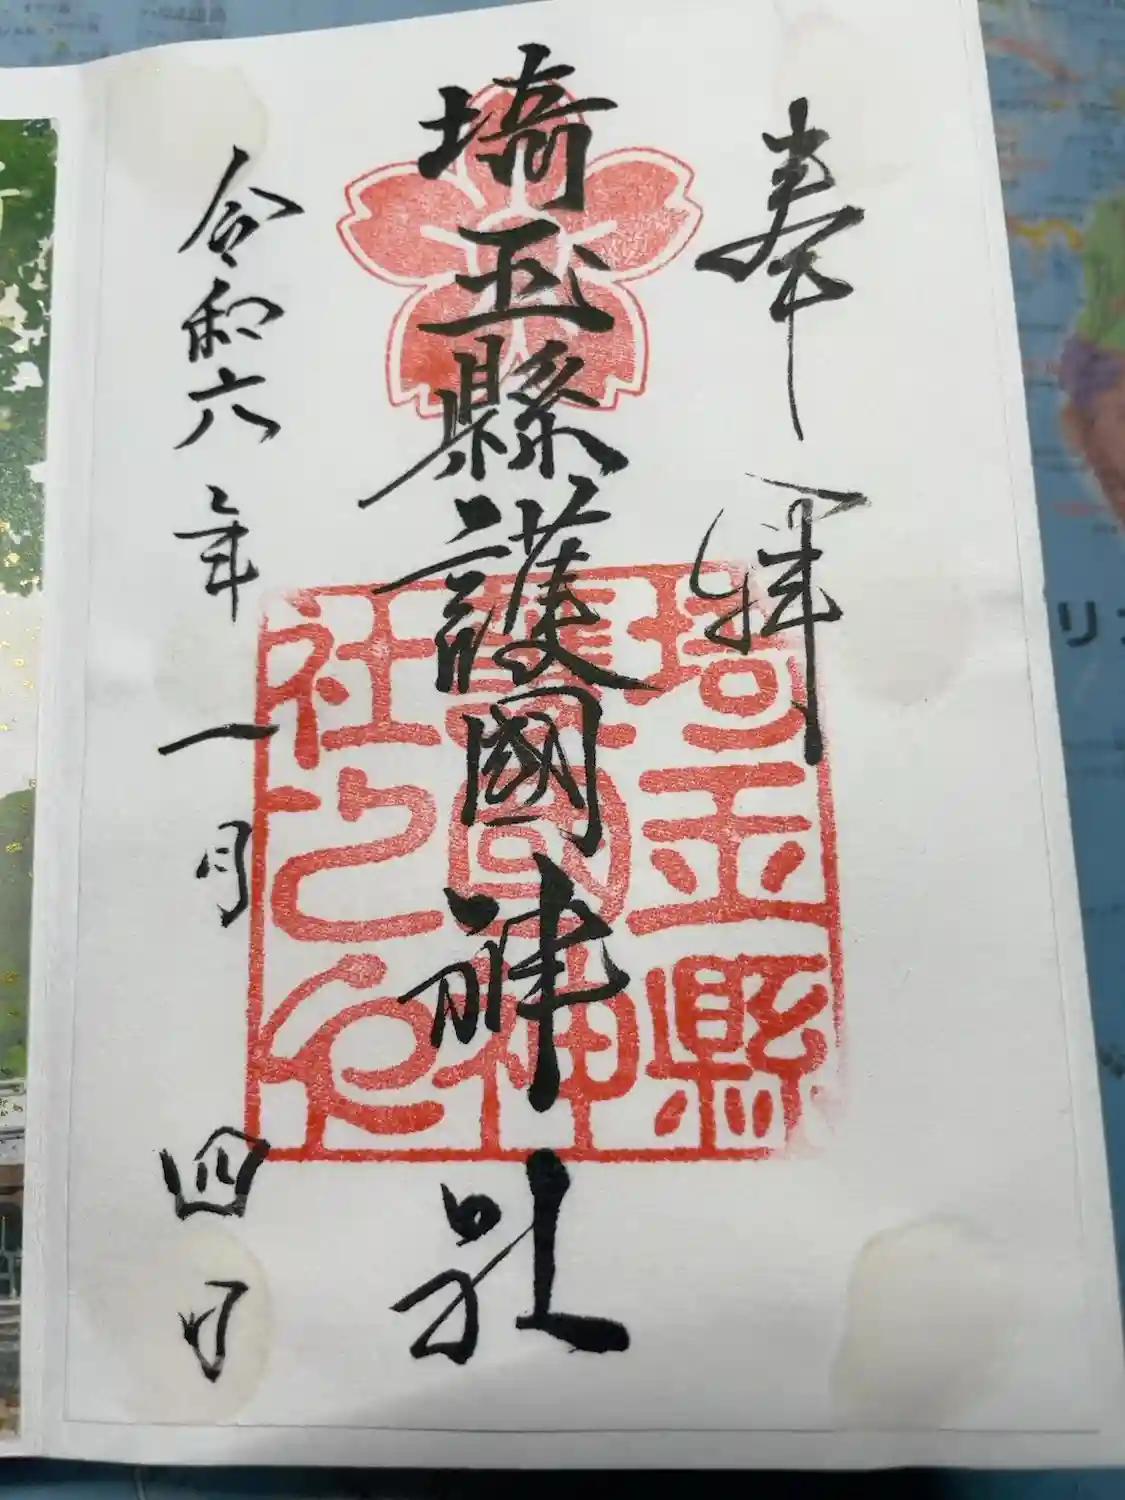 奉拝
埼玉縣護國神社
埼玉縣
護國神
社之印
令和六年一月四日
リ